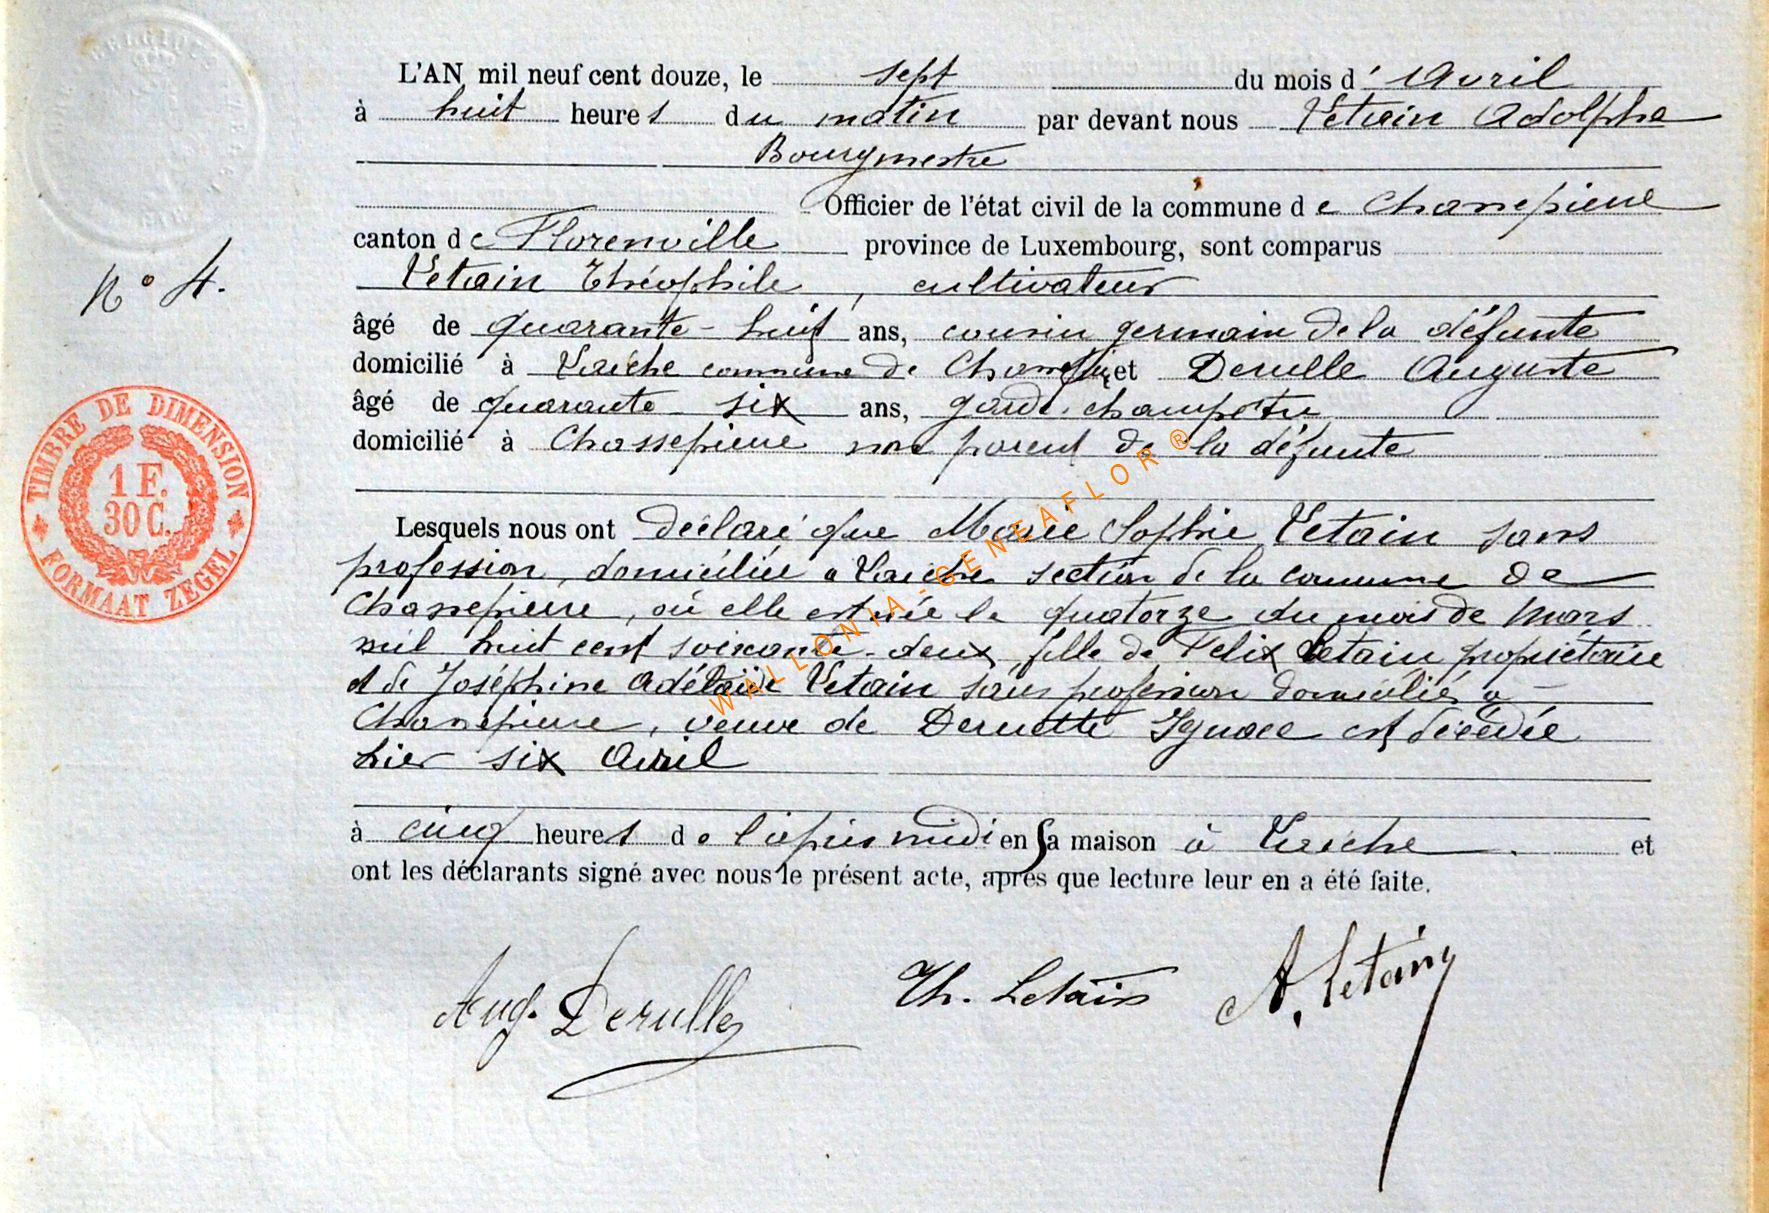 BELGIQUE
L'AN mil neuf cent douze, le sept du mois d' Avril
à huit heures du matin par devant nous Letain Adolphe
Bourgmestre
Officier de l'état civil de la commune de Chassepierre
canton de Florenville province de Luxembourg, sont comparus
N° 4.
Letain Théophile, cultivateur
âgé de quarante-huit ans, cousin germain de la défunte
domicilié à Laiche commune de Chassepi et Derulle Auguste
âgé de quarante six ans, garde champêtre
domicilié à Chassepierre non parent de la défunte
TIMBRE DE DIMENSION
1 F.
30 C.
FORMAAT ZEGEL
Lesquels nous ont déclaré que Marie Sophie Letain sans
profession, domiciliée à Laiche section de la commune de
Chassepierre, où elle est née le quatorze du mois de Mars
mil huit cent soixante-deux, fille de Felix Letain propriétaire
et de Joséphine Adélaïde Letain sans profession domiciliés à
Chassepierre, veuve de Ignace est décédée
hier six Avril
à cinq heures de l'après midi en sa maison à Laiche et
ont les déclarants signé avec nous le présent acte, après que lecture leur en a été faite.
Aug. Derulle Th. Letain A. Letain
WALLONIA-GENEAFLOR®